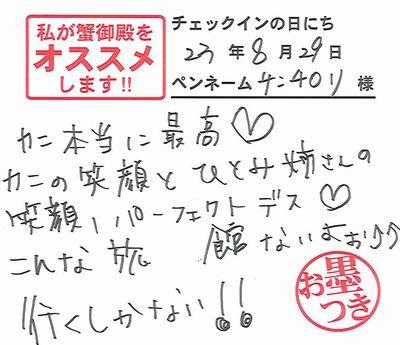 私が蟹御殿を
オススメ
します!!
チェックインの日にち
23年8月29日
ペンネーム サンキュー 様
カニ本当に最高♡
カニの笑顔とひとみ姉さんの
笑顔、パーフェクトデス♡
こんな旅館ないよおぉぉ
行くしかない!!
お墨つき